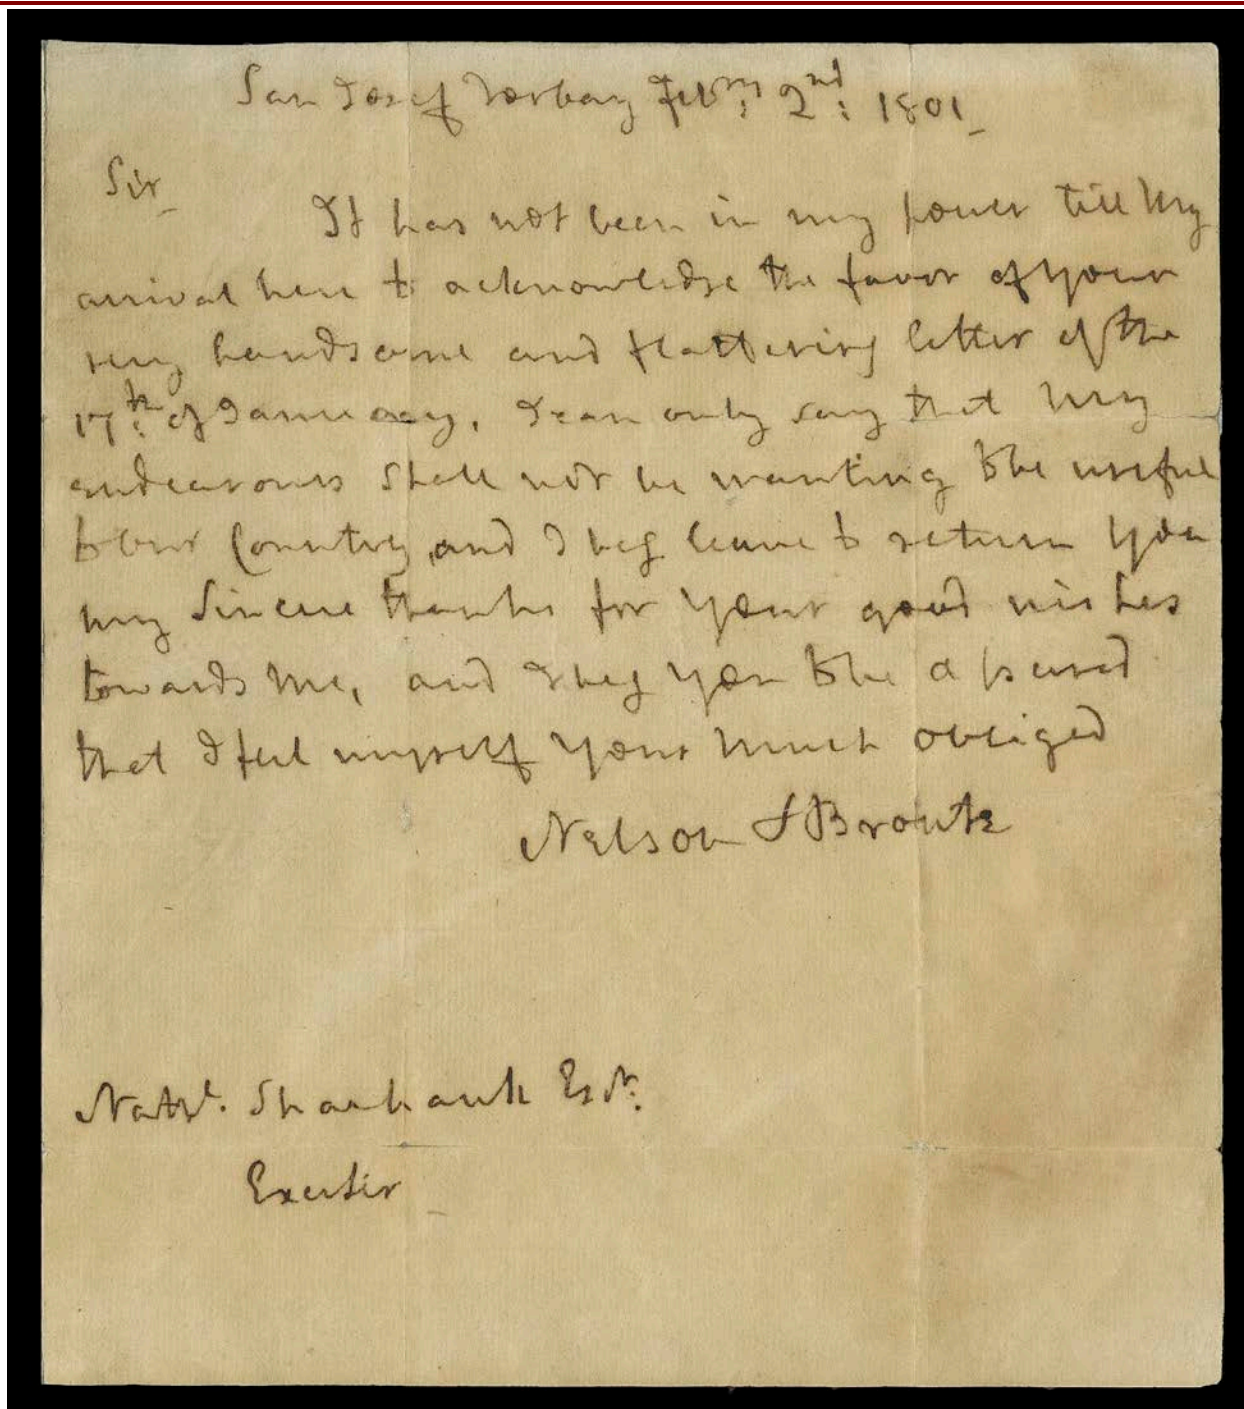 San Josef Torbay Feb:ry 2nd: 1801
Sir
It has not been in my power till my
arrival here to acknowledge the favor of your
very handsome and flattering letter of the
17th: of January, I can only say that my
endeavours shall not be wanting to be useful
to our Country, and I beg leave to return you
my sincere thanks for your good wishes
towards me, and I beg you to be assured
that I feel myself your much obliged
Nelson & Bronte
Esqr:
Exeter